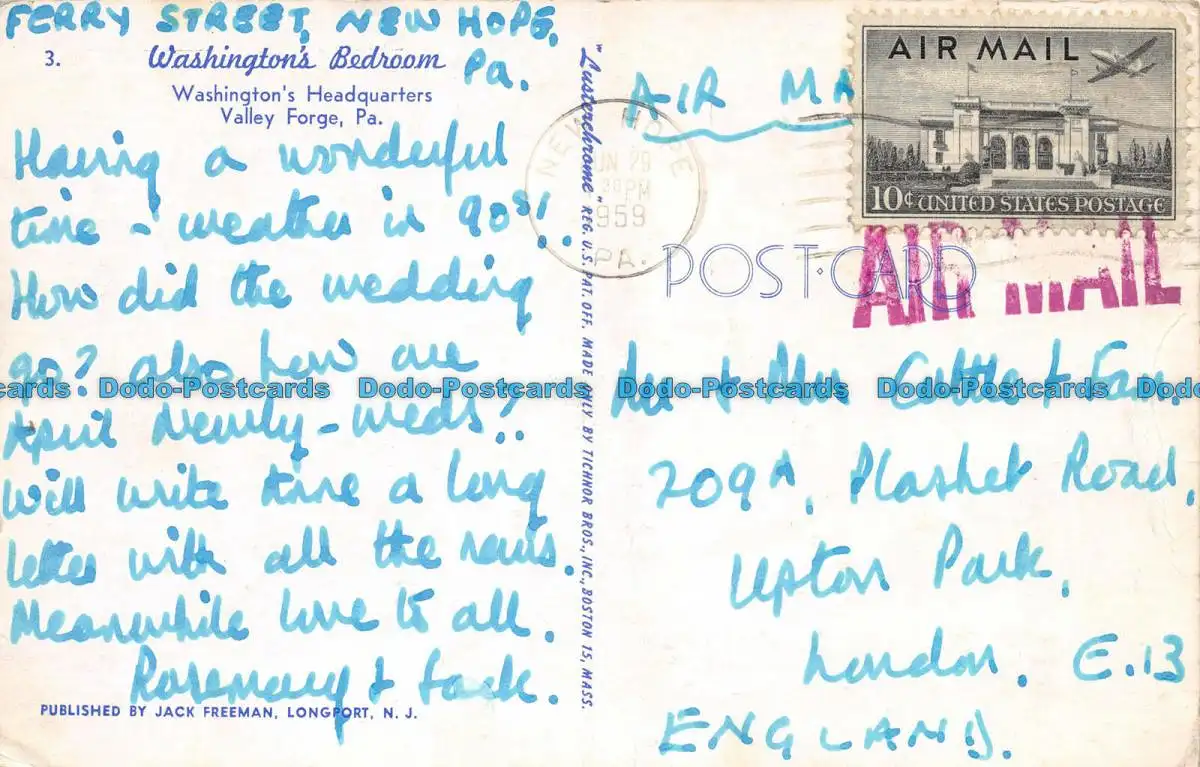 FERRY STREET, NEW HOPE,
Pa.
3.
Washington's Bedroom
Washington's Headquarters
Valley Forge, Pa.
Having a wonderful
time - weather in 90s!.
How did the wedding
go? also how are
April Newly-weds?
Will write time a long
letter with all the news.
Meanwhile love to all.
Rosemary & Jack.
PUBLISHED BY JACK FREEMAN, LONGPORT, N. J.
"Lusterchrome" REG. U.S. PAT. OFF. MADE ONLY BY TICHNOR BROS., INC., BOSTON 15, MASS.
AIR MA
NEW HOPE
JUN 29
30PM
1959
PA.
AIR MAIL
10¢ UNITED STATES POSTAGE
POST CARD
AIR MAIL
Mr & Mrs Cuttle & Fam.
209A, Plashet Road,
Upton Park,
London, E.13
ENGLAND.
Dodo-Postcards Dodo-Postcards Dodo-Postcards Dodo-Postcards Dodo-Postcards